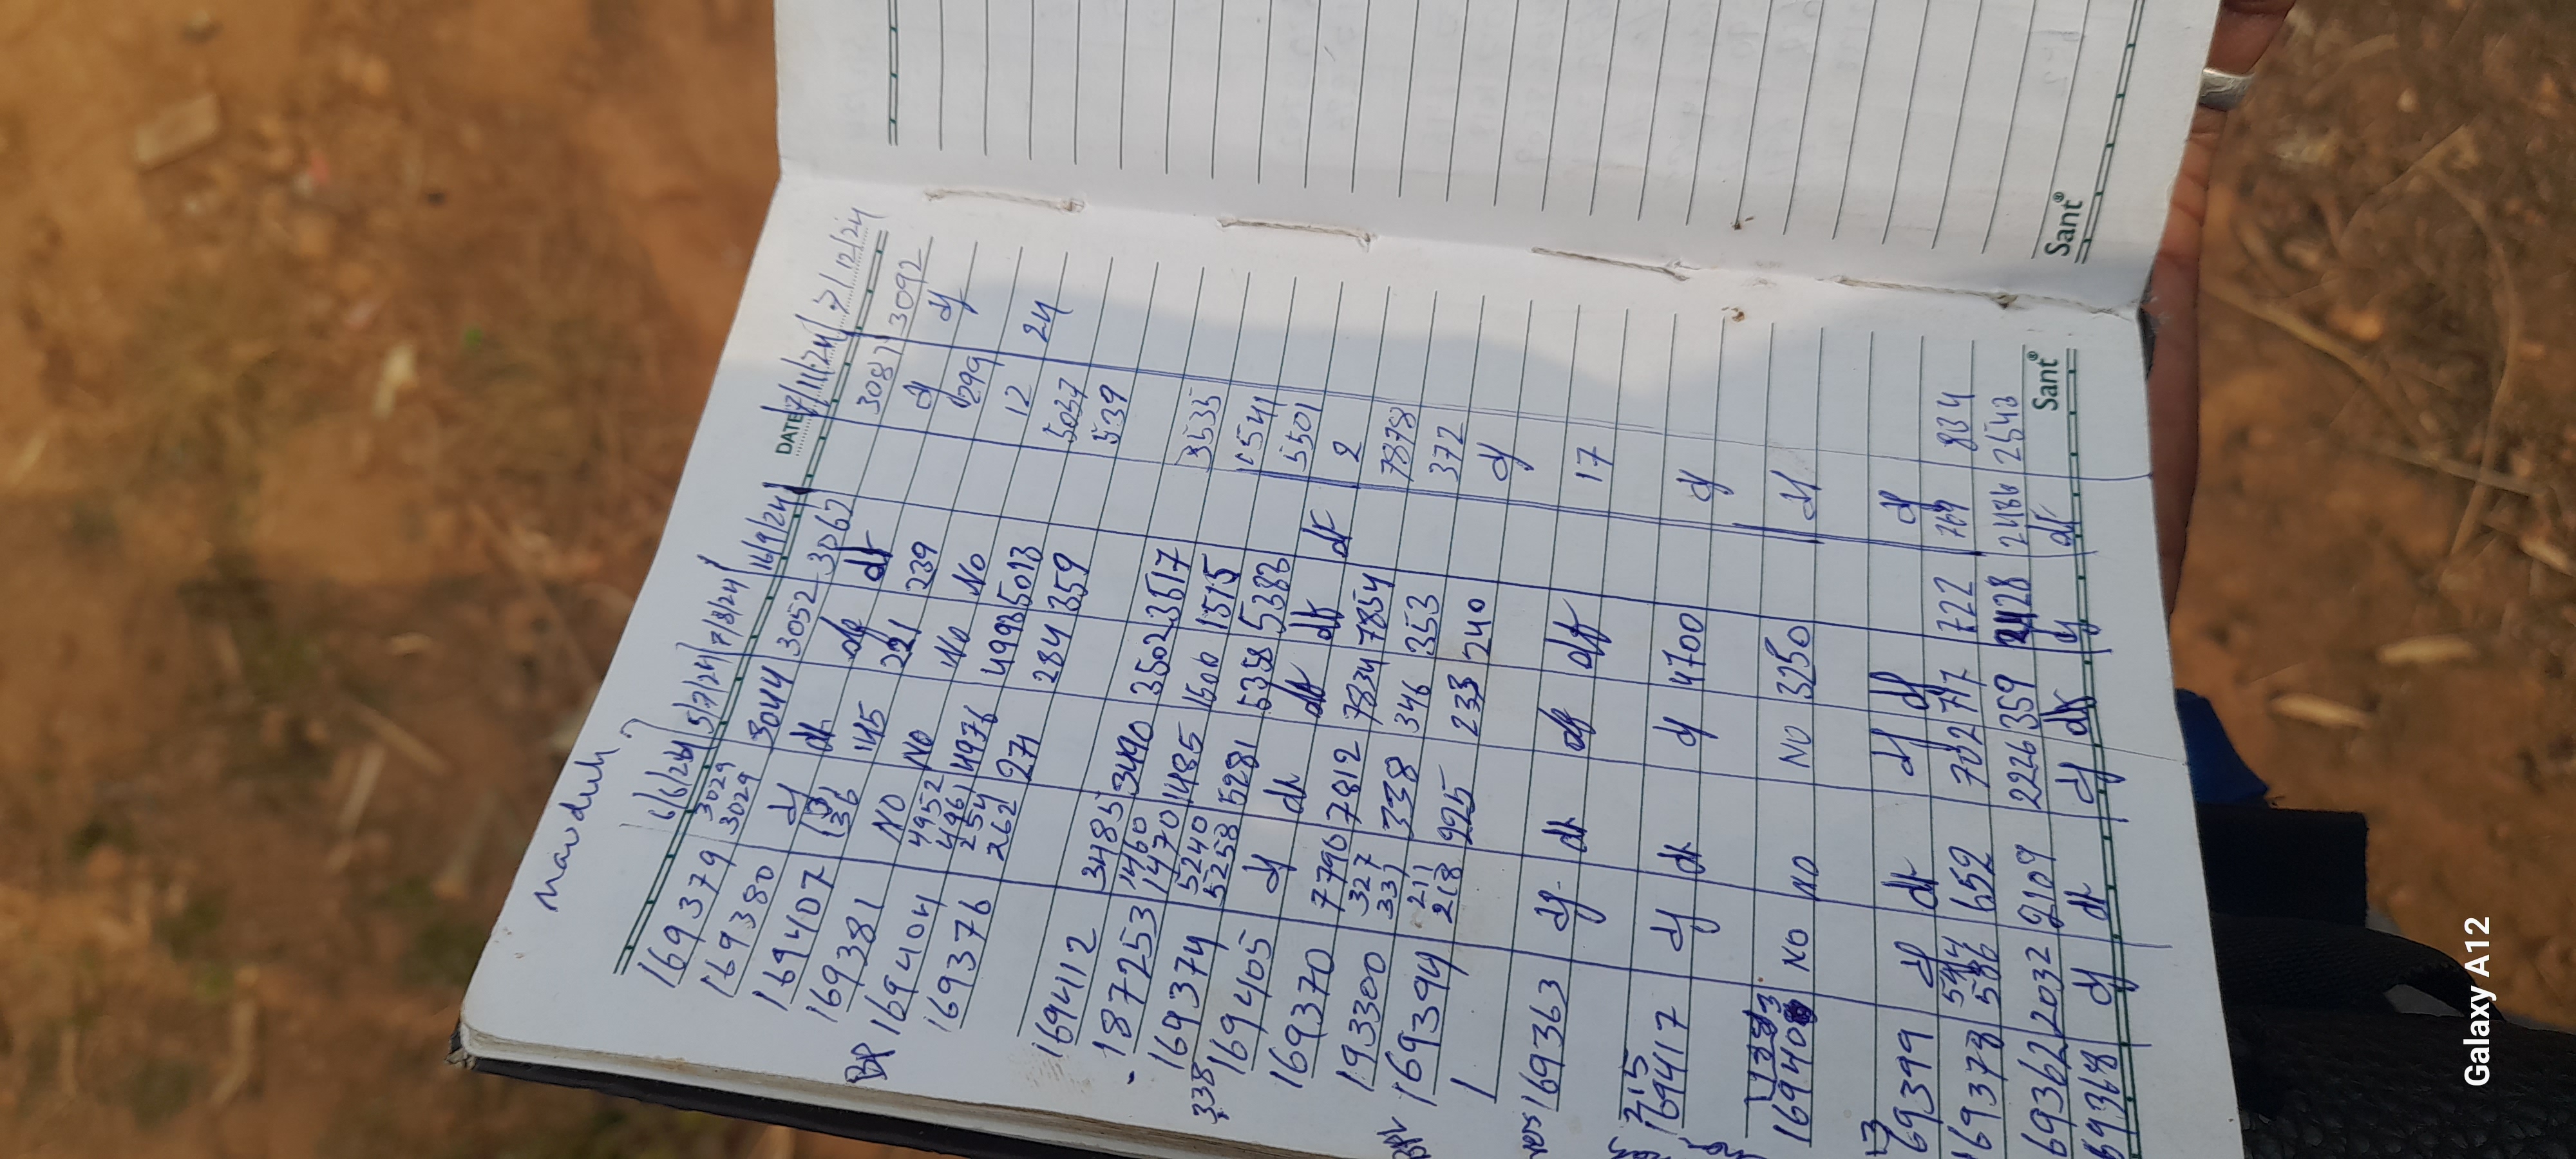 Mavdueh
DATE
6/6/24 5/7/24 7/8/24 16/9/24 7/11/24 7/12/24
169379 3029 3029 3044 3052 3067 3087 3092
169380 df dr df df df df
169407 136 145 221 239 299
169381 NO NO No No 12 24
BP 169404 4952 4961 4976 4998 5013 5037
169376 254 262 271 284 359 539
169412 3485 3490 3502 3517 3535
187253 1460 1470 1485 1500 1515 1541
169374 5240 5258 5281 5358 5383 5501
338
169405 df dr df df df 2
169370 7790 7812 7834 7854 7878
193300 327 331 338 346 353 372
169394 211 218 225 233 240 df
169363 df dr df df 17
215
169417 df dr df 4700 df
169408 NO NO NO 3250 df
13
69399 df dr df df df
169378 544 586 652 702 717 722 769 834
69362 2032 2109 2226 359 2428 2486 2543
69368 df dr df dr df df
Sant®
Sant®
Galaxy A12